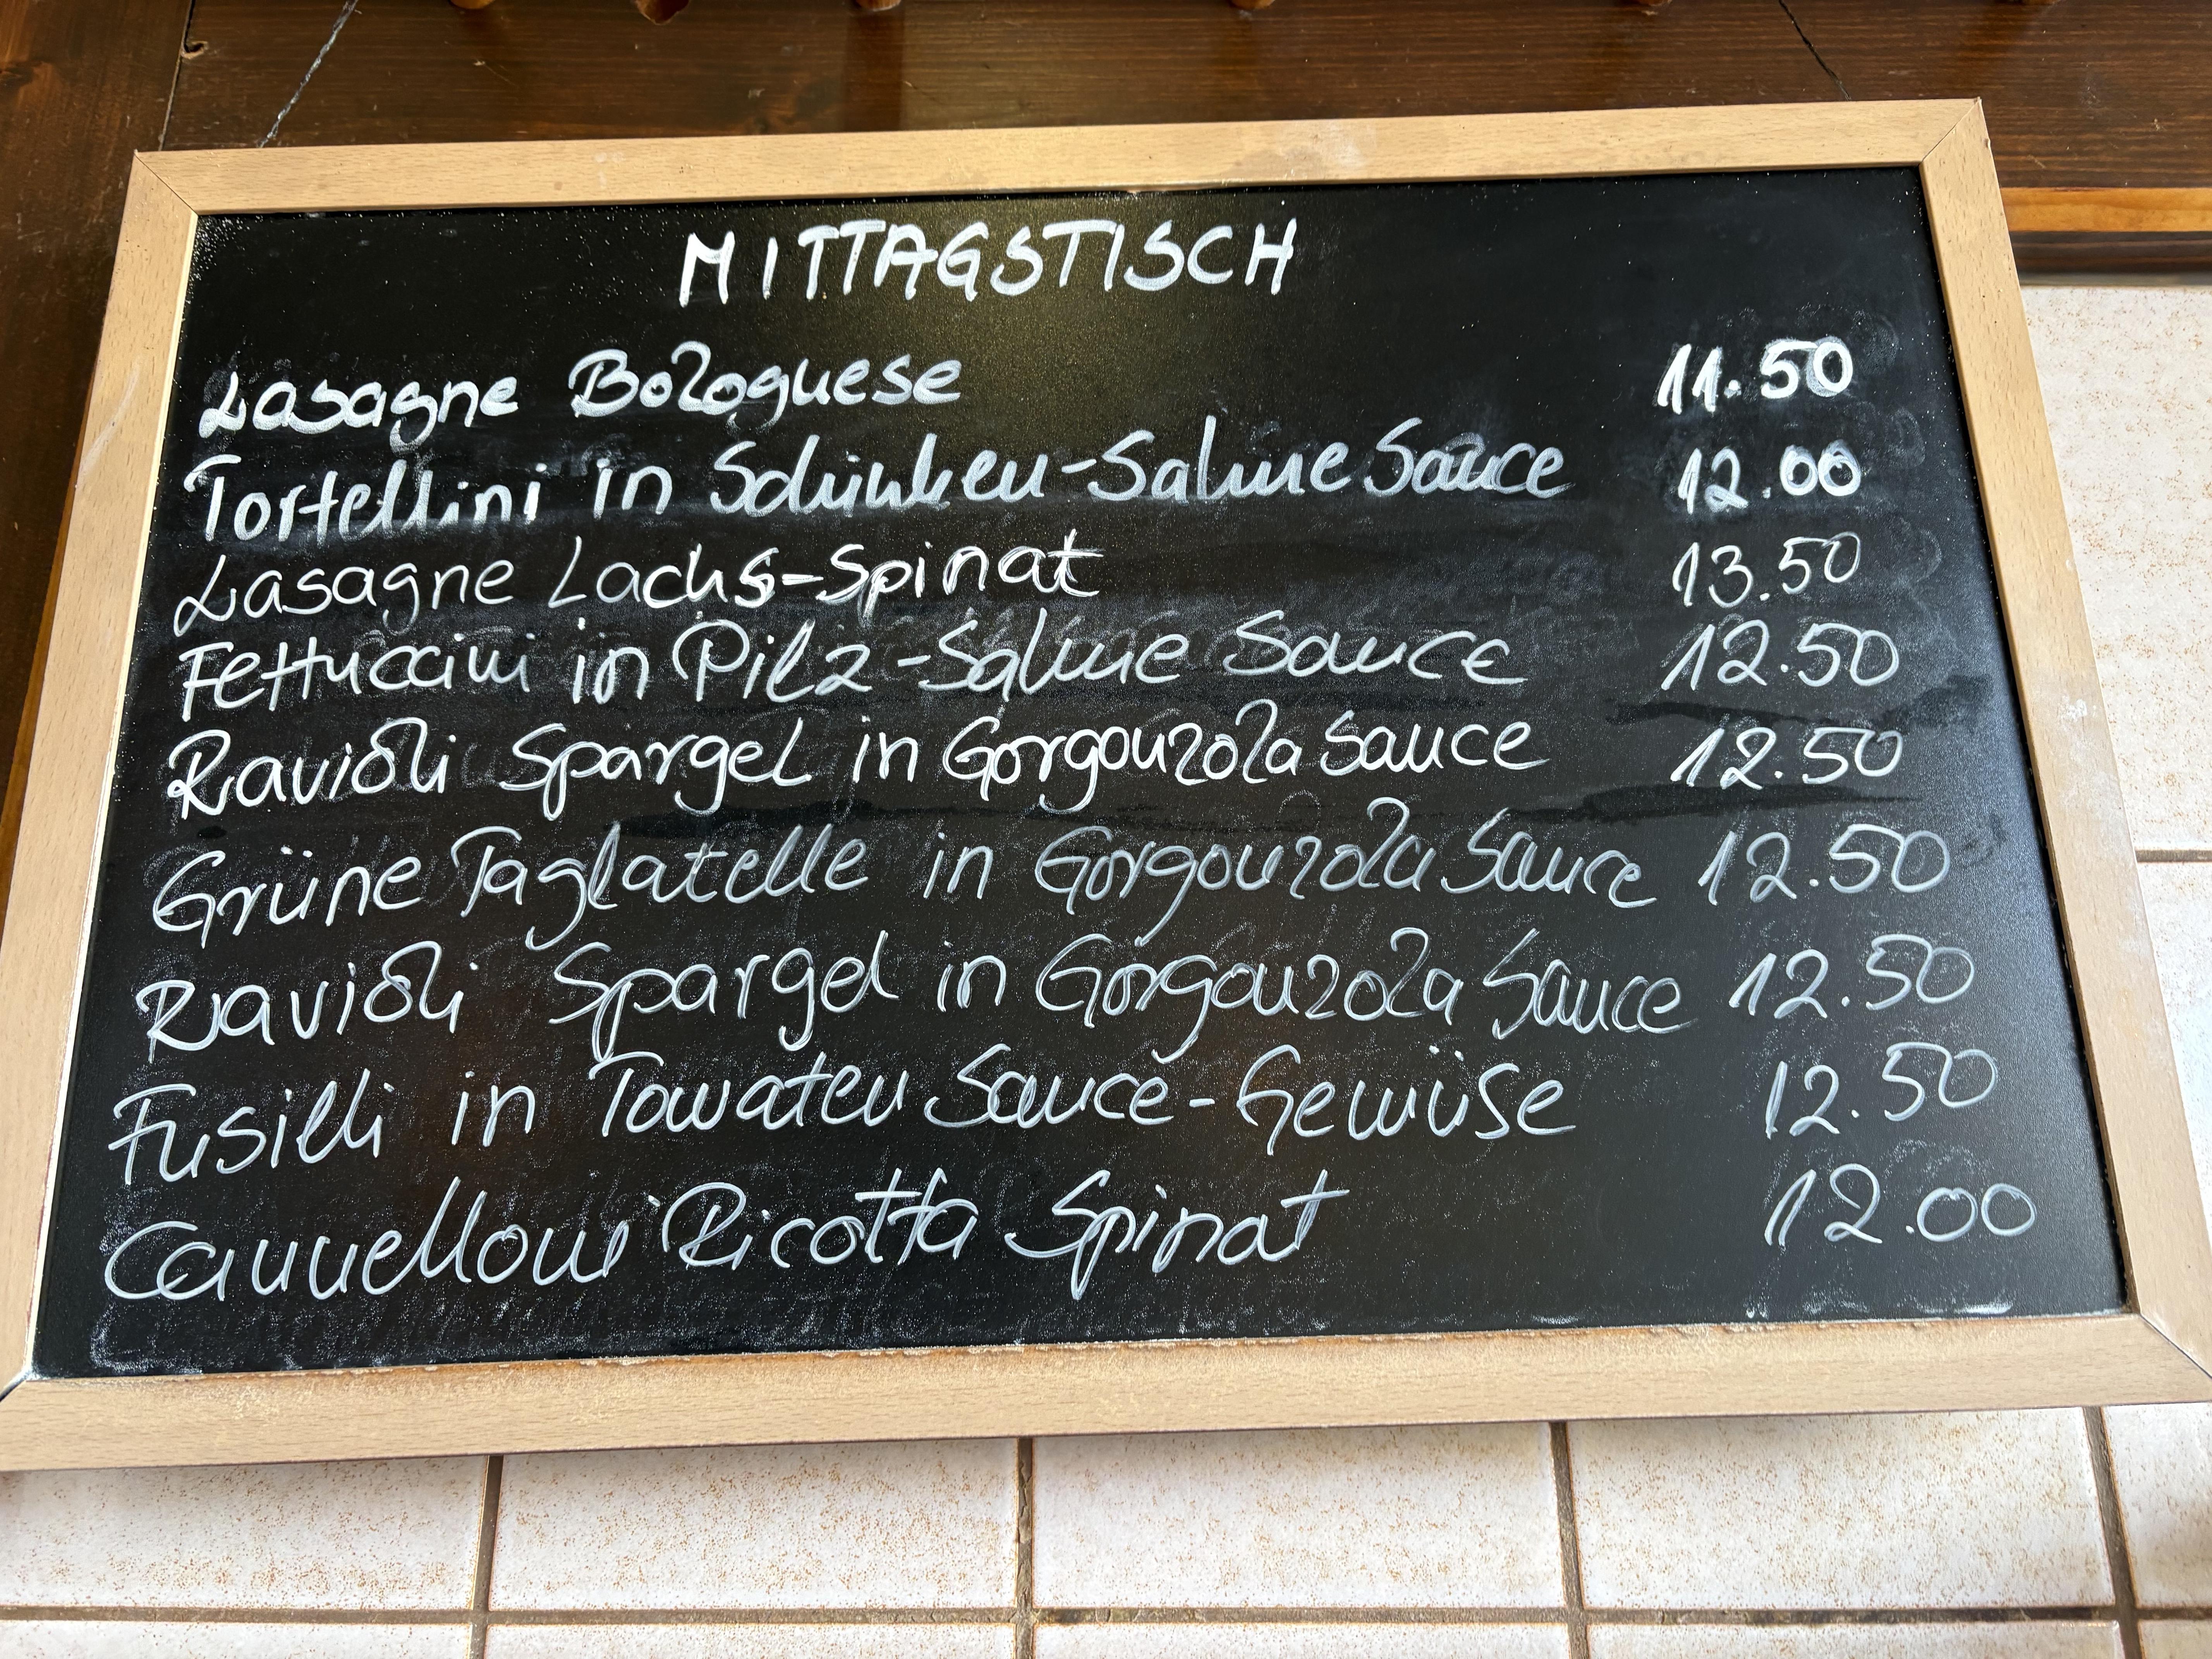 MITTAGSTISCH
Lasagne Bolognese 11.50
Tortellini in Schinken-Sahne Sauce 12.00
Lasagne Lachs-Spinat 13.50
Fettuccini in Pilz-Sahne Sauce 12.50
Ravioli Spargel in Gorgonzola Sauce 12.50
Grüne Taglatelle in Gorgonzola Sauce 12.50
Ravioli Spargel in Gorgonzola Sauce 12.50
Fusilli in Tomaten Sauce-Gemüse 12.50
Cannelloni Ricotta Spinat 12.00